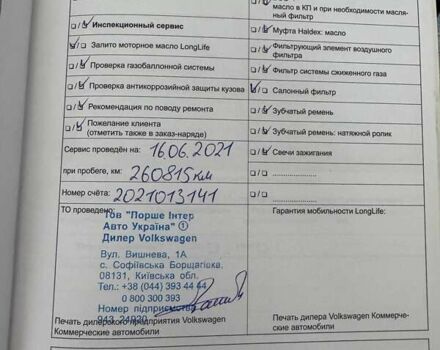 масло в КП и при необходимости масля-
ный фильтр
Инспекционный сервис
Муфта Haldex: масло
Залито моторное масло LongLife
Фильтрующий элемент воздушного
фильтра
Проверка газобаллонной системы
Фильтр системы сжиженного газа
Проверка антикоррозийной защиты кузова
Салонный фильтр
Рекомендация по поводу ремонта
Зубчатый ремень
Пожелание клиента
(отметить также в заказ-наряде)
Зубчатый ремень: натяжной ролик
Сервис проведён на: 16.06.2021
Свечи зажигания
при пробеге, км: 260815 км
Номер счёта: 2021013141
ТО проведено:
Тов "Порше Інтер
Авто Україна" ①
Дилер Volkswagen
Вул. Вишнева, 1А
с. Софіївська Борщагівка
08131, Київська обл.
Тел.: +38 (044) 393 44 44
0 800 300 393
Номер підприємства
943 24920
Печать дилерского предприятия Volkswagen
Коммерческие автомобили
Гарантия мобильности LongLife:
Печать дилера Volkswagen Коммерче-
ские автомобили